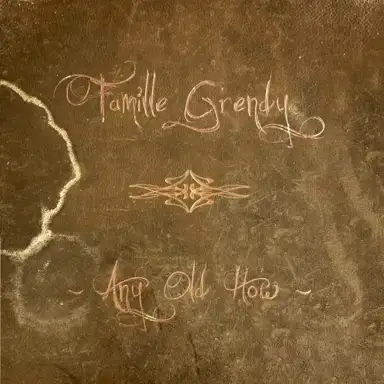 Famille Grendy
~ Any Old How ~